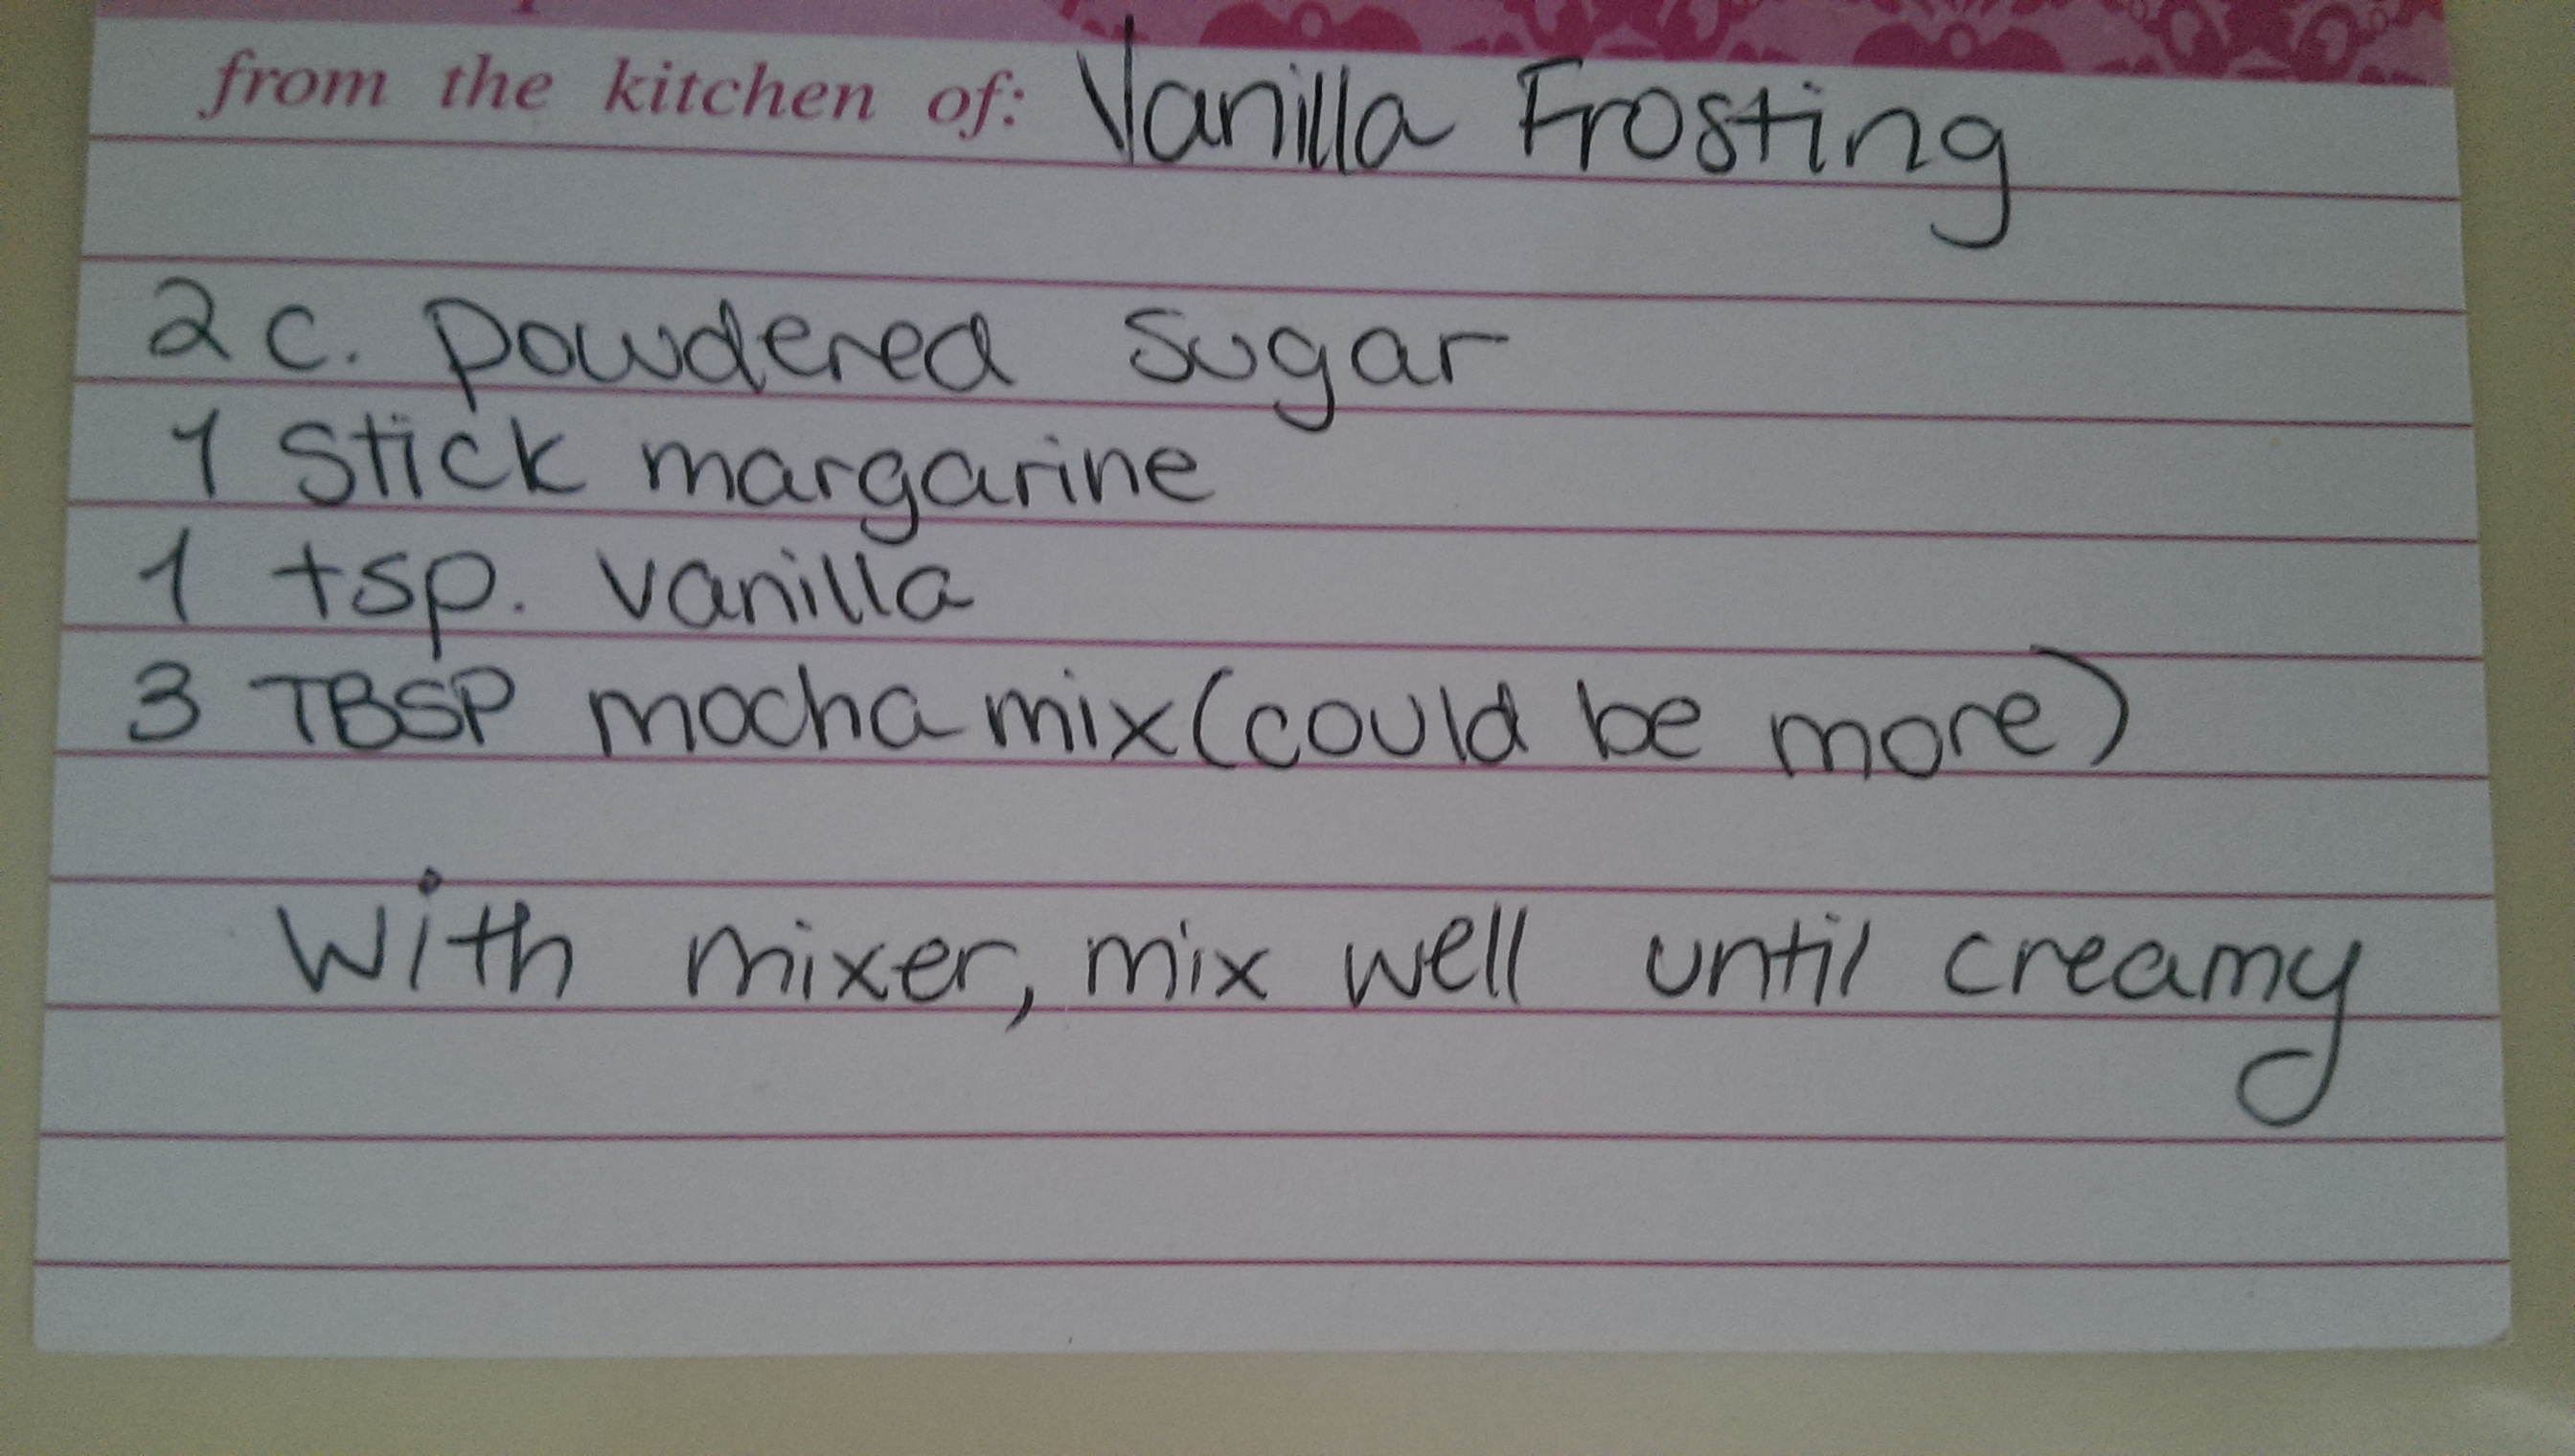 from the kitchen of: Vanilla Frosting
2 c. powdered sugar
1 stick margarine
1 tsp. vanilla
3 TBSP mocha mix (could be more)
With mixer, mix well until creamy